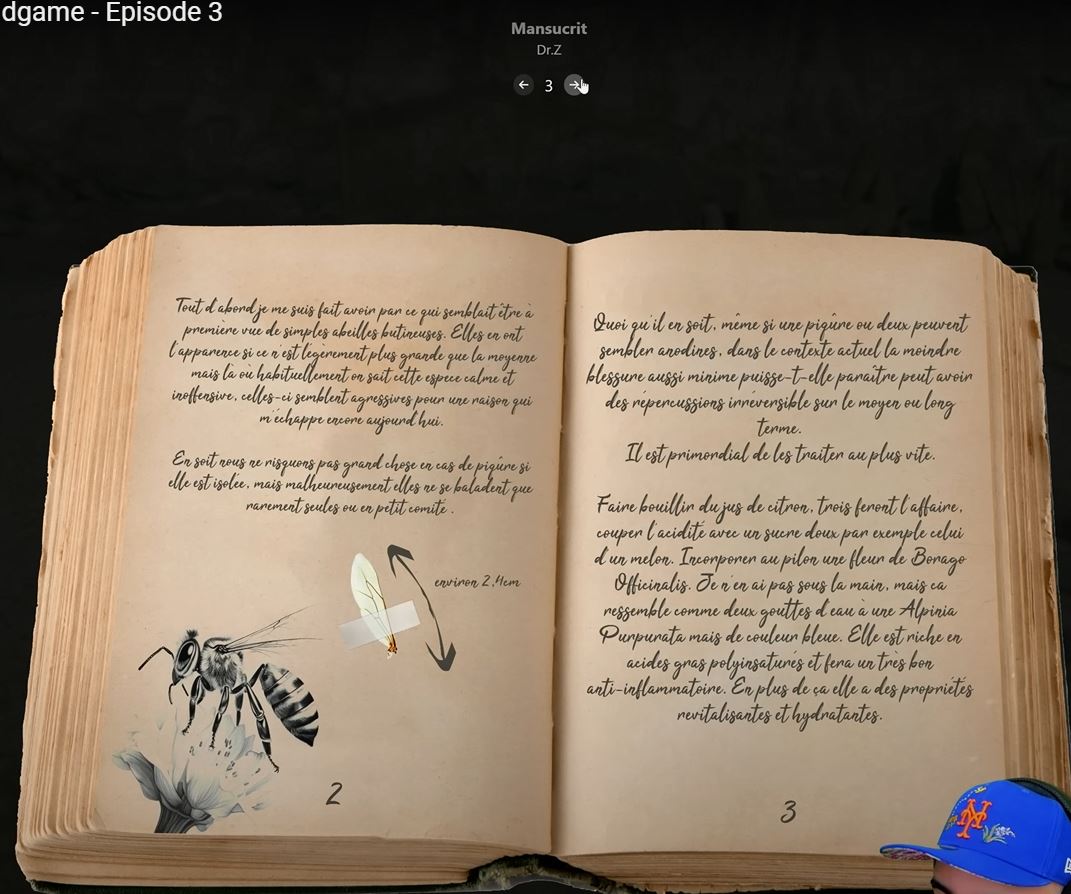 dgame - Episode 3
Mansucrit
Dr.Z
3
Tout d'abord je me suis fait avoir par ce qui semblait être à
première vue de simples abeilles butineuses. Elles en ont
l'apparence si ce n'est légèrement plus grande que la moyenne
mais là où habituellement on sait cette espece calme et
inoffensive, celles-ci semblent agressives pour une raison qui
m'échappe encore aujourd'hui.
En soit nous ne risquons pas grand chose en cas de piqûre si
elle est isolée, mais malheureusement elles ne se baladent que
rarement seules ou en petit comité.
environ 2,4cm
2
Quoi qu'il en soit, même si une piqûre ou deux peuvent
sembler anodines, dans le contexte actuel la moindre
blessure aussi minime puisse-t-elle paraître peut avoir
des repercussions irréversible sur le moyen ou long
terme.
Il est primordial de les traiter au plus vite.
Faire bouillir du jus de citron, trois feront l'affaire,
couper l'acidité avec un sucre doux par exemple celui
d'un melon. Incorporer au pilon une fleur de Borago
Officinalis. Je n'en ai pas sous la main, mais ca
ressemble comme deux gouttes d'eau à une Alpinia
Purpurata mais de couleur bleue. Elle est riche en
acides gras polyinsaturés et fera un très bon
anti-inflammatoire. En plus de ça elle a des propriétés
revitalisantes et hydratantes.
3
NY